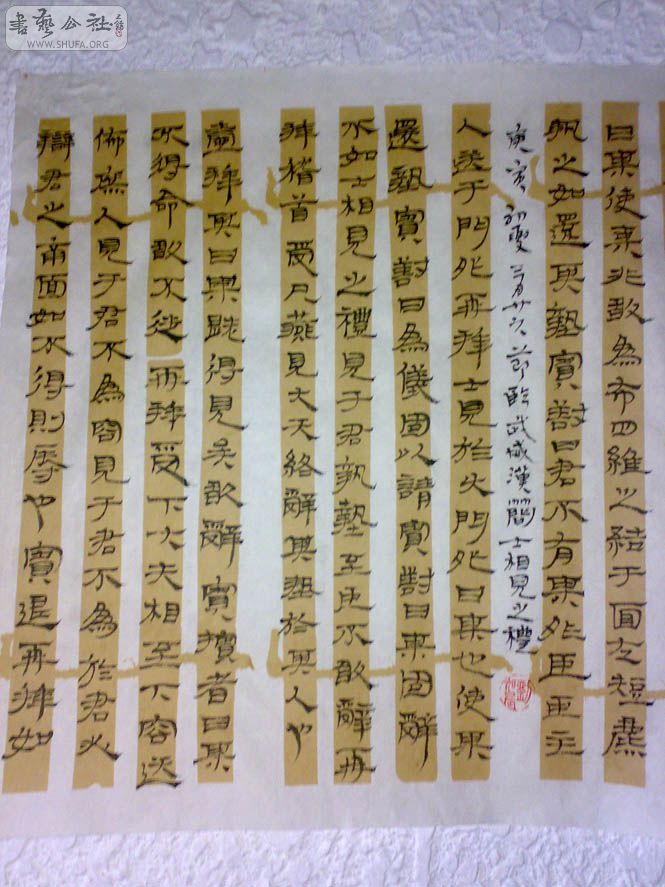 書藝公社
WWW.SHUFA.ORG
曰某使某非敢為布四維之結于面左短麃
執之如還其摯賓對曰君不有其外臣臣主
庚寅初夏 三月廿六 節臨武威漢簡士相見之禮
人送于門外再拜士見於大門外曰某也使某
還摯賓對曰為儀固以請賓對曰某固辭
不如士相見之禮見于君執摯至下不敢辭再
拜稽首受凡燕見大夫終辭其摯於其人也
壹拜其曰某 得見矣敢辭賓擯者曰某
不得命敢不從再拜受下大夫相至下容送
佈 人見于君不為容見于君不為於君必
辯君之南面如不得則辱也賓退再拜如